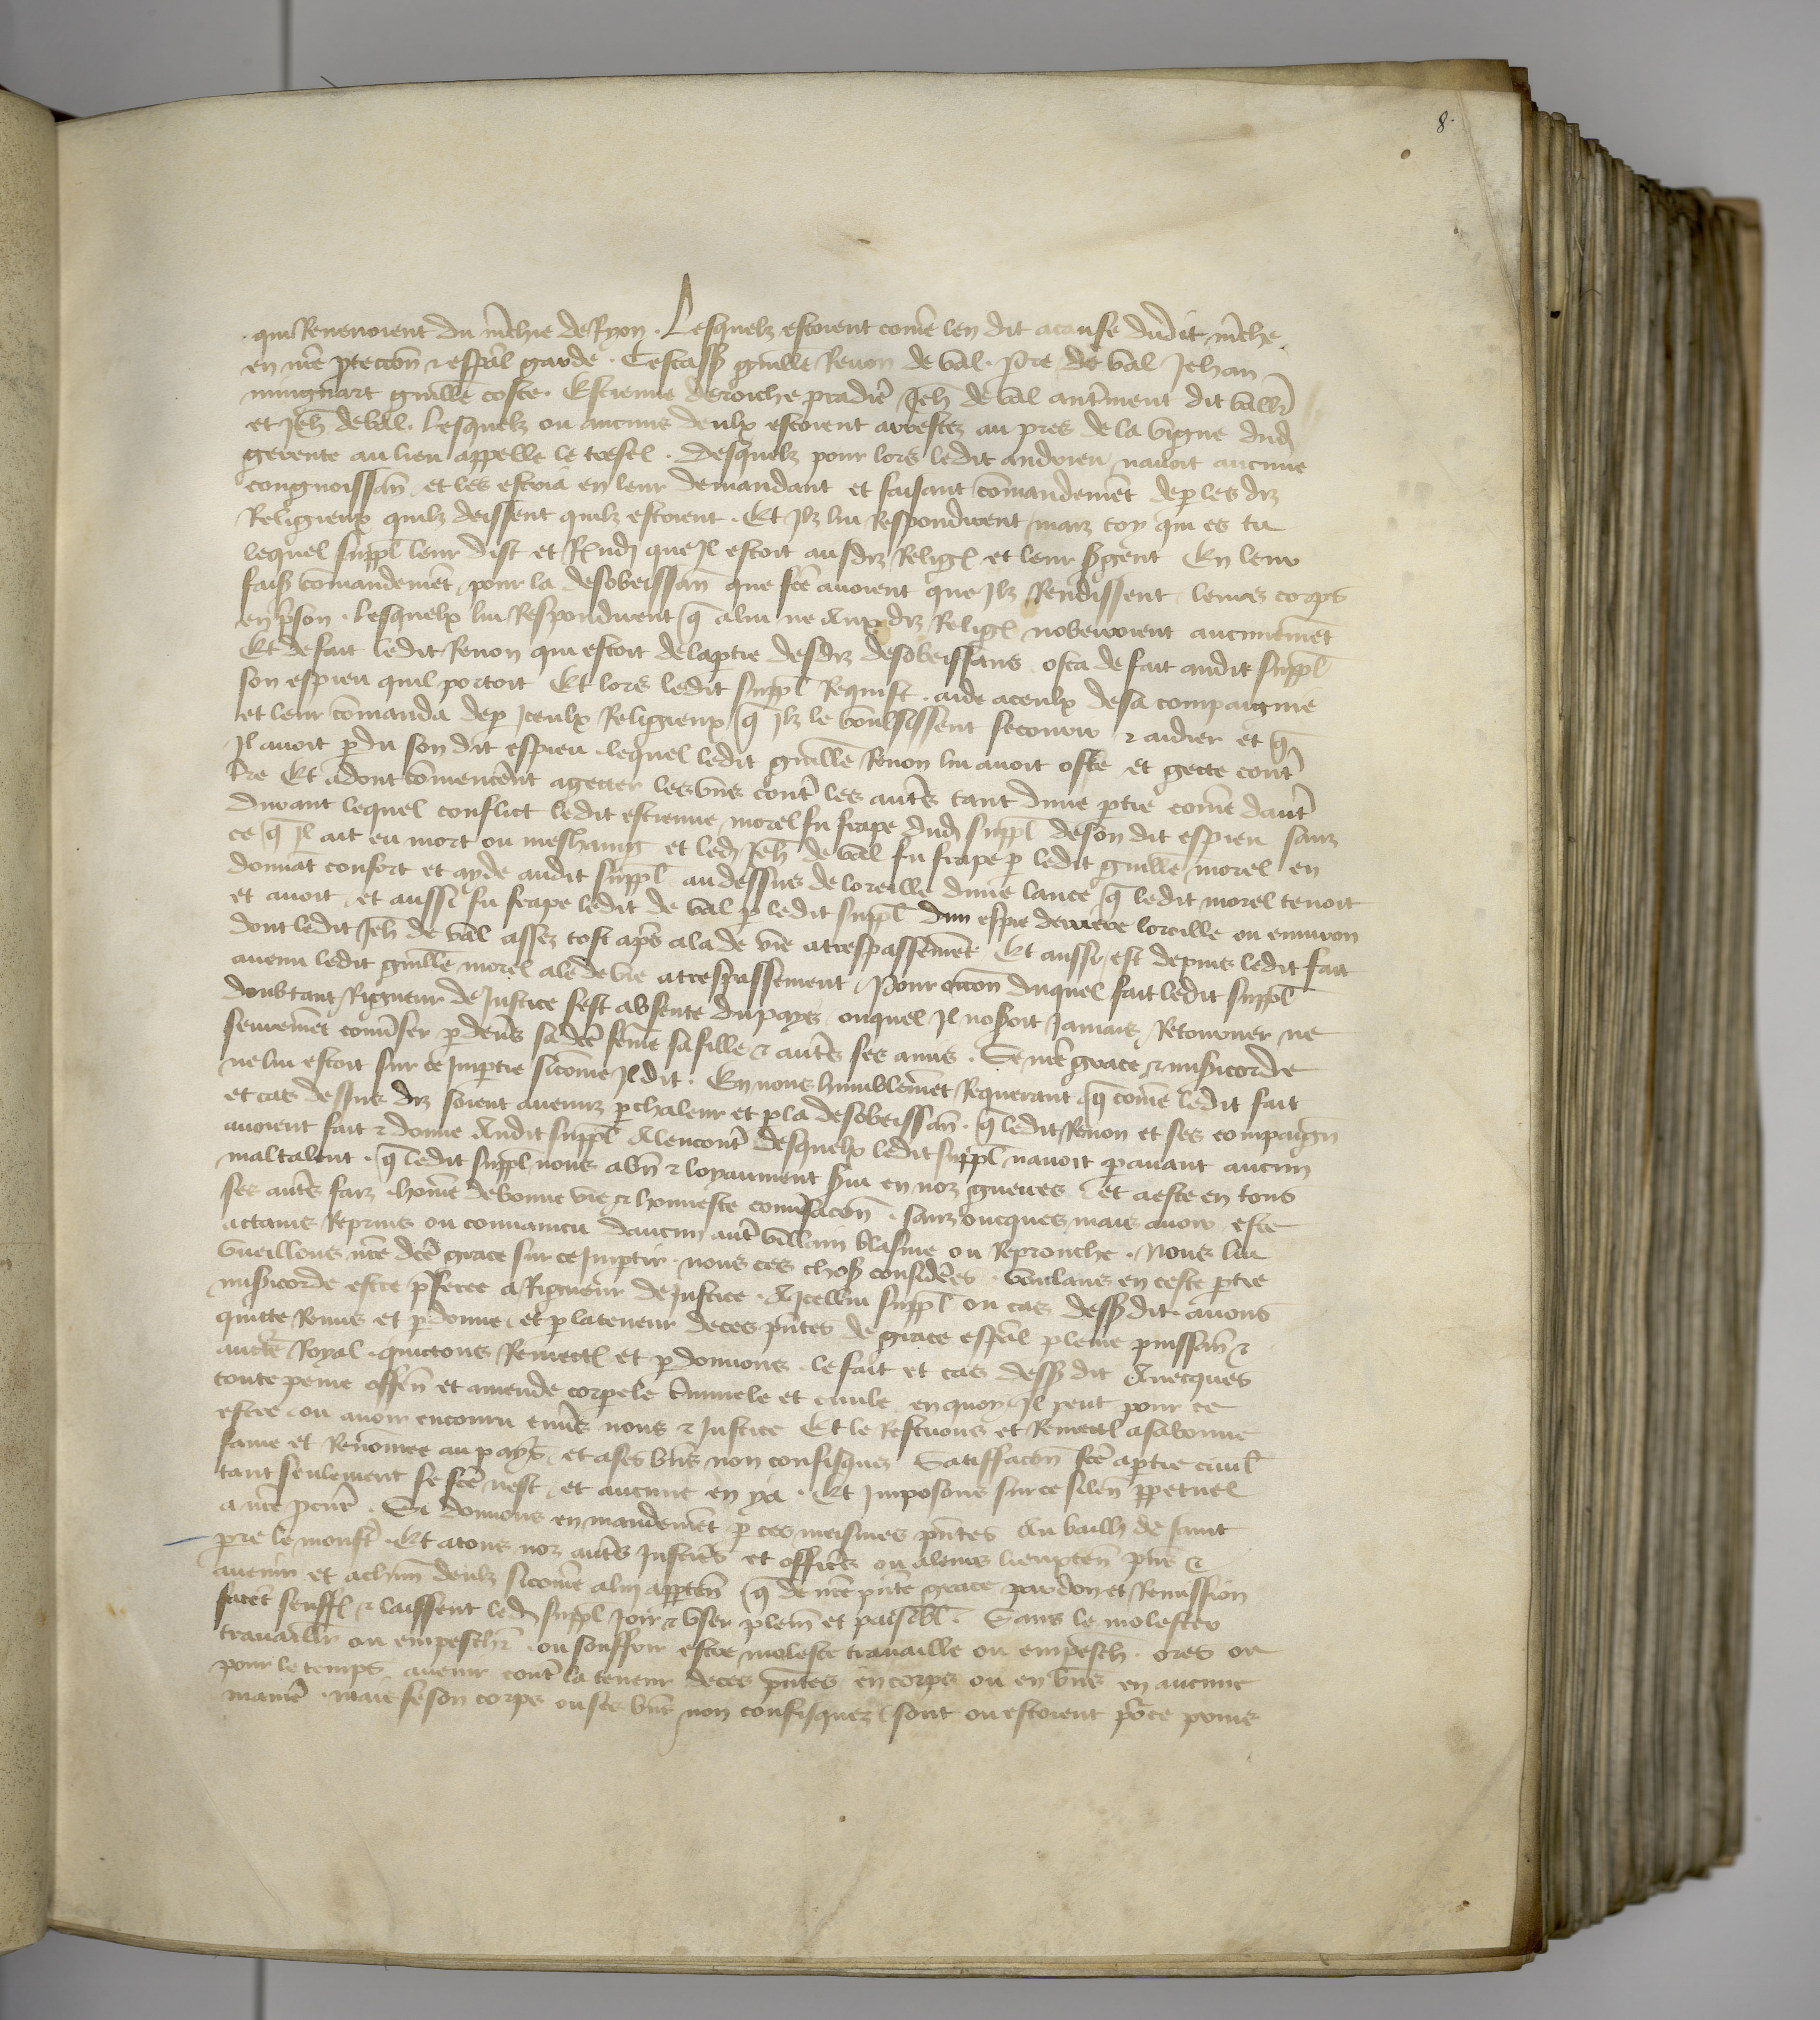 8.
qui Revenoient du mche de Ryon . Lesquelz estoient come len dit acause dudit mche
en nre ptection & espal garde . Cestass guille Renon de val . Pre de val Jehan
mingnart guille coste . Estienne deroiche pradie Jeh de val autment dit vall
et Jeh deval . Lesquelz ou aucuns deulx estoient arrestez au pres de la vigne dud
gerente au lieu appelle le tresel . Desquelz pour lors ledit andrieu navoit aucune
congnoissan et les escria en leur demandant et faisant comandemet dep les drz
Religieux quilz deissent quilz estoient . Et Ilz lui Respondirent mais toy qui es tu
lequel suppl leur dist et Rndi que Il estoit ausdrz Religx et leur sgent En leur
fais comandemet pour la desobeissan que fce avoient que Ilz Rendissent leurs corps
en pson . Lesquelx lui Respondirent q alui ne Aux drz Relig nobeiroient aucunemet
Et defait ledit Renon qui estoit delaptie desdrz desobeissans osta de fait audit suppl
son espieu quil portoit Et lors ledit suppl Requist aide aceulx desa compaignie
et leur comanda dep Iceulx Religieux q Ilz le voulsissent secourir & aidier et q
Il avoit pdu son dit espieu lequel ledit guille Renon lui avoit oste et gecte cont
tre Et adont comencent agecter lesuns cont les auts tant dune ptie come daut
Durant lequel conflict ledit estienne morel fu frape dud suppl deson dit espieu sanz
ce q Il ait eu mort ou meshaing et led Jeh de val fu frape p ledit guille morel en
donnat confort et ayde audit suppl audessus de loreille dune lance q ledit morel tenoit
et avoit et aussi fu frape ledit de val p ledit suppl dun espie derriere loreille ou environ
dont ledit Jeh de val assez tost aps ala de vie atrespassemet Et aussi est depuis ledit fait
avenu ledit guille morel ale de vie atrespassement Pour occon duquel fait ledit suppl
doubtant Rigueur de Justice sest absente du pays ouquel Il nosoit Jamais Retourner ne
seuremet conuser p devs sa dce feme safille & auts ses amis . Se nre grace & misicorde
ne lui estoit sur ce Impartie sicome Il dit . En nous humblemet Requerant q come ledit fait
et cas dessus drz soient avenuz p chaleur et p la desobeissan . q ledit Renon et ses compaign
avoient fait & donne Audit suppl Alencont desquelx ledit suppl navoit pavant aucun
maltalent . q ledit suppl nous abn & loyaument svi en noz guerres et aeste en tous
ses auts faiz home debonne vie & honneste conusacon . sanz oncques mais avoir este
actains Reprins ou convaincu daucun aut villain blasme ou Reprouche . Nous lui
vueillons nre dce grace sur ce Imptir nous ces chos consideres . voulans en ceste ptie
misicorde estre pferee a Rigueur de Justice . A Icellui suppl ou cas dess dit avons
quitte Remis et pdonne et p lateneur deces pntes de grace espal pleine puissan &
aucte Royal quictons Remectx et pdonnons le fait et cas dess dit Avecques
toute peine offen et amende corpele crimnele et civile en quoy Il peut pour ce
estre ou avoir encouru envs nous & Justice Et le Restituons et Remectx asabonne
fame et Renomee au pays et ases bns non confisquez Satisfacon fce aptie civil
tant seulement se fce nest et aucune en ya . Et Imposons sur ce silen ppetuel
a nre pcur . Si donnons en mandemet p ces meismes pntes Au bailli de saint
pre le monst Et atous noz auts Justics et officis ou aleurs lieuxten pns &
avenir et achun deulx sicome alui appten q de nre pnte grace pardon et Remission
facet seuffx & laissent led suppl Joir & user pleinet et paisibl . Sans le molester
travaillir ou empeschr ou souffrir estre moleste travaille ou empesch ores or
pour le temps avenir cont la teneur deces pntes en corps ou en bns en aucune
manie . mais se son corps ou ses bns non confisquez sont ou estoient po ce prins